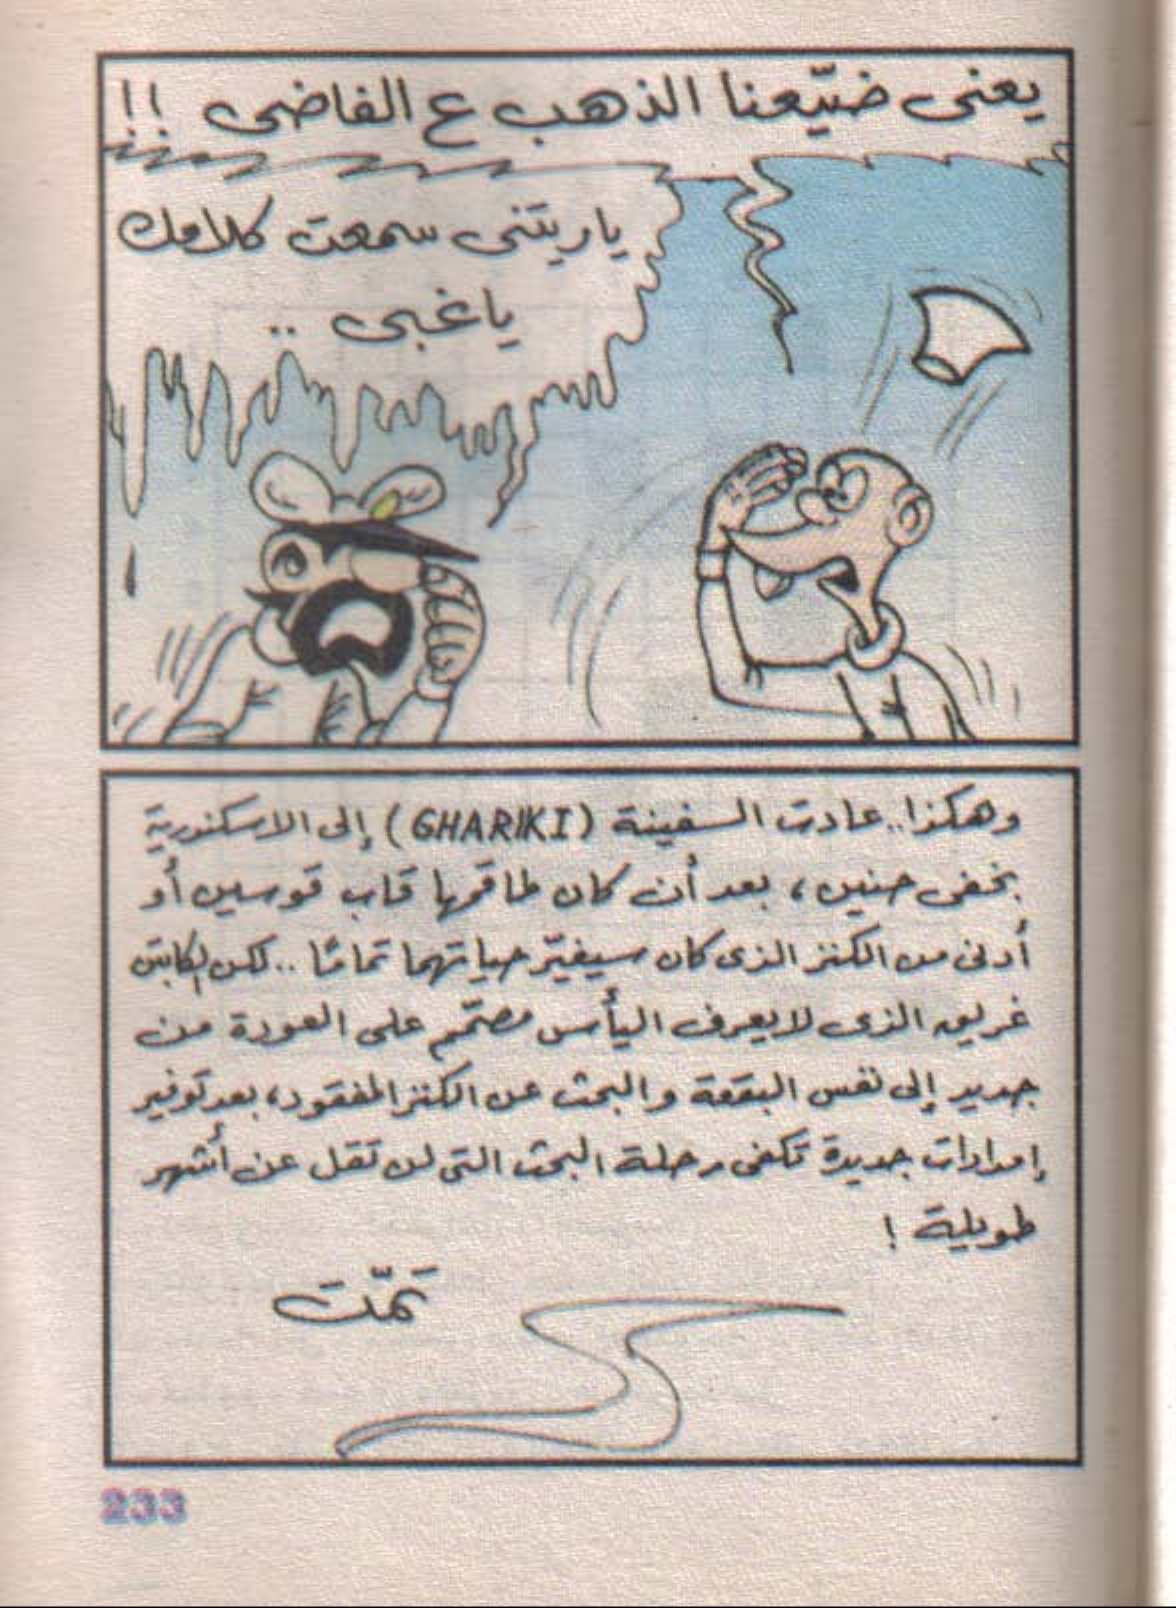 يعنى ضيّعنا الذهب ع الفاضى !!
ياريتنى سمعت كلامك
ياغبى ..
وهكذا..عادت السفينة (GHARIKI) إلى الاسكندرية
بخفى حنين، بعد أن كان طاقمها قاب قوسين أو
أدنى من الكنز الذى كان سيغيّر حياتهما تمامًا ..لكن الكابتن
غريق الذى لا يعرف اليأس مصمّم على العودة من
جديد إلى نفس البقعة والبحث عن الكنز المفقود، بعد توفير
إمدادات جديدة تكفى رحلة البحث التى لن تقل عن أشهر
طويلة !
تمّت
233